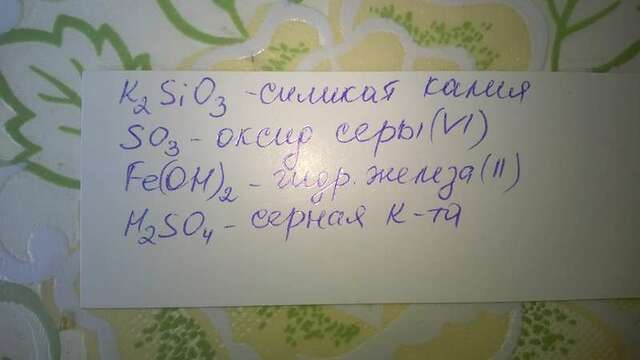 K2SiO3 - силикат калия
SO3 - оксид серы (VI)
Fe(OH)2 - гидр. железа (II)
H2SO4 - серная к-та